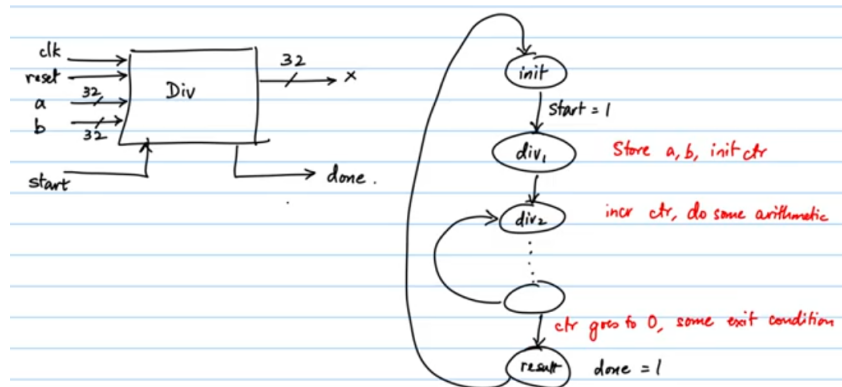 clk
reset
a 32
b 32
Div
32 x
start
done.
init
start = 1
div1 Store a, b, init ctr
div2 incr ctr, do some arithmetic
ctr goes to 0, some exit condition
result done = 1